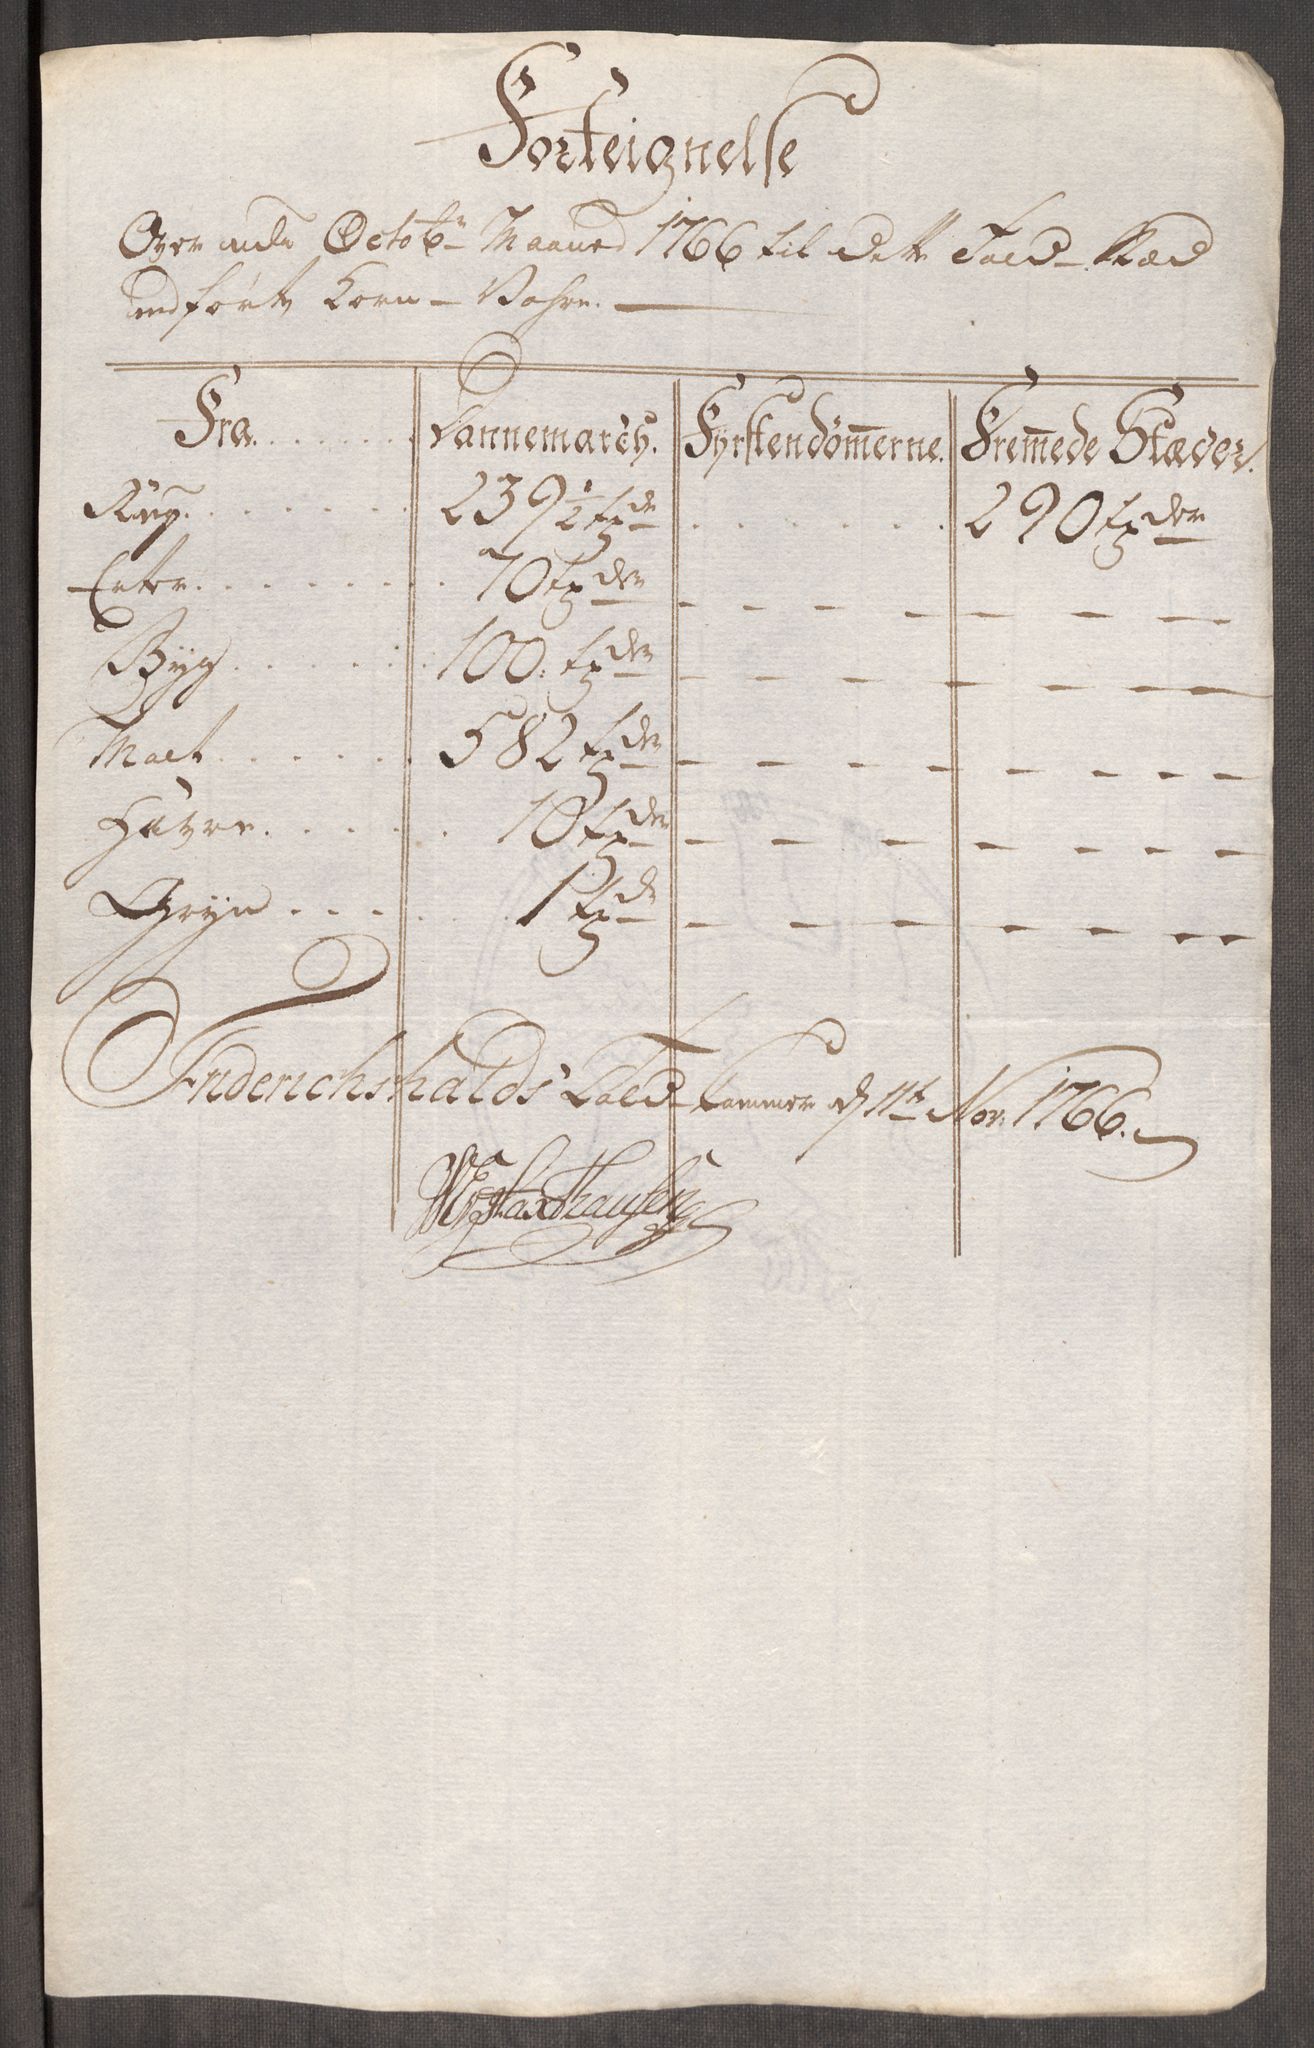 Forteignelse
Over udi Octobr Maaned 1766 til dette Told-Stæd
indførte Korn-Vahre.
Fra. Dannemarch. Fyrstendömerne. Fremede Stæder.
Rug. 239 1/2 tde 290 tder
Erter. 70 tder
Byg. 100. tder
Malt. 582 tder
Havre. 10 tder
Gryn 1 tde
Friderichshalds Told-Kammer d 11te Nov. 1766.